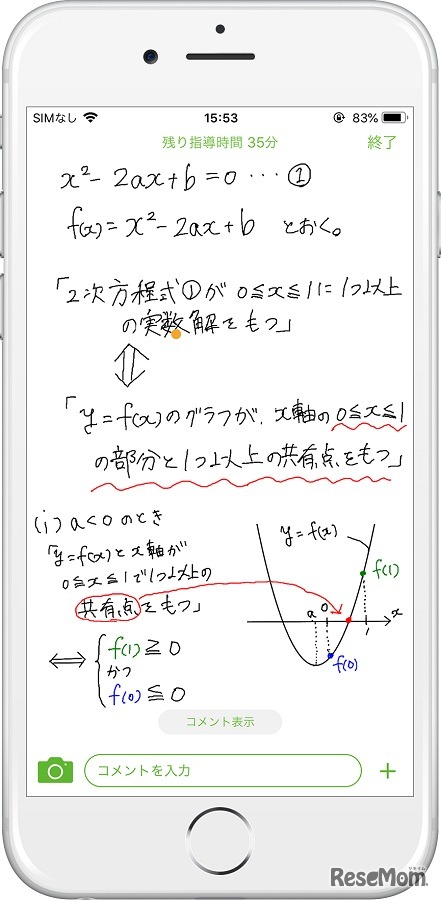 SIMなし 15:53 83%
残り指導時間 35分 終了
x²-2ax+b=0 … ①
f(x)=x²-2ax+b とおく。
「2次方程式①が 0≦x≦1に1つ以上
の実数解をもつ」
⇕
「y=f(x)のグラフが、x軸の0≦x≦1
の部分と1つ以上の共有点をもつ」
(i) a<0のとき
「y=f(x)とx軸が
0≦x≦1で1つ以上の
共有点をもつ」
⇔ { f(1)≧0
かつ
f(0)≦0
y=f(x)
f(1)
a 0 1 x
f(0)
コメント表示
コメントを入力 +
リセマム
ReseMom